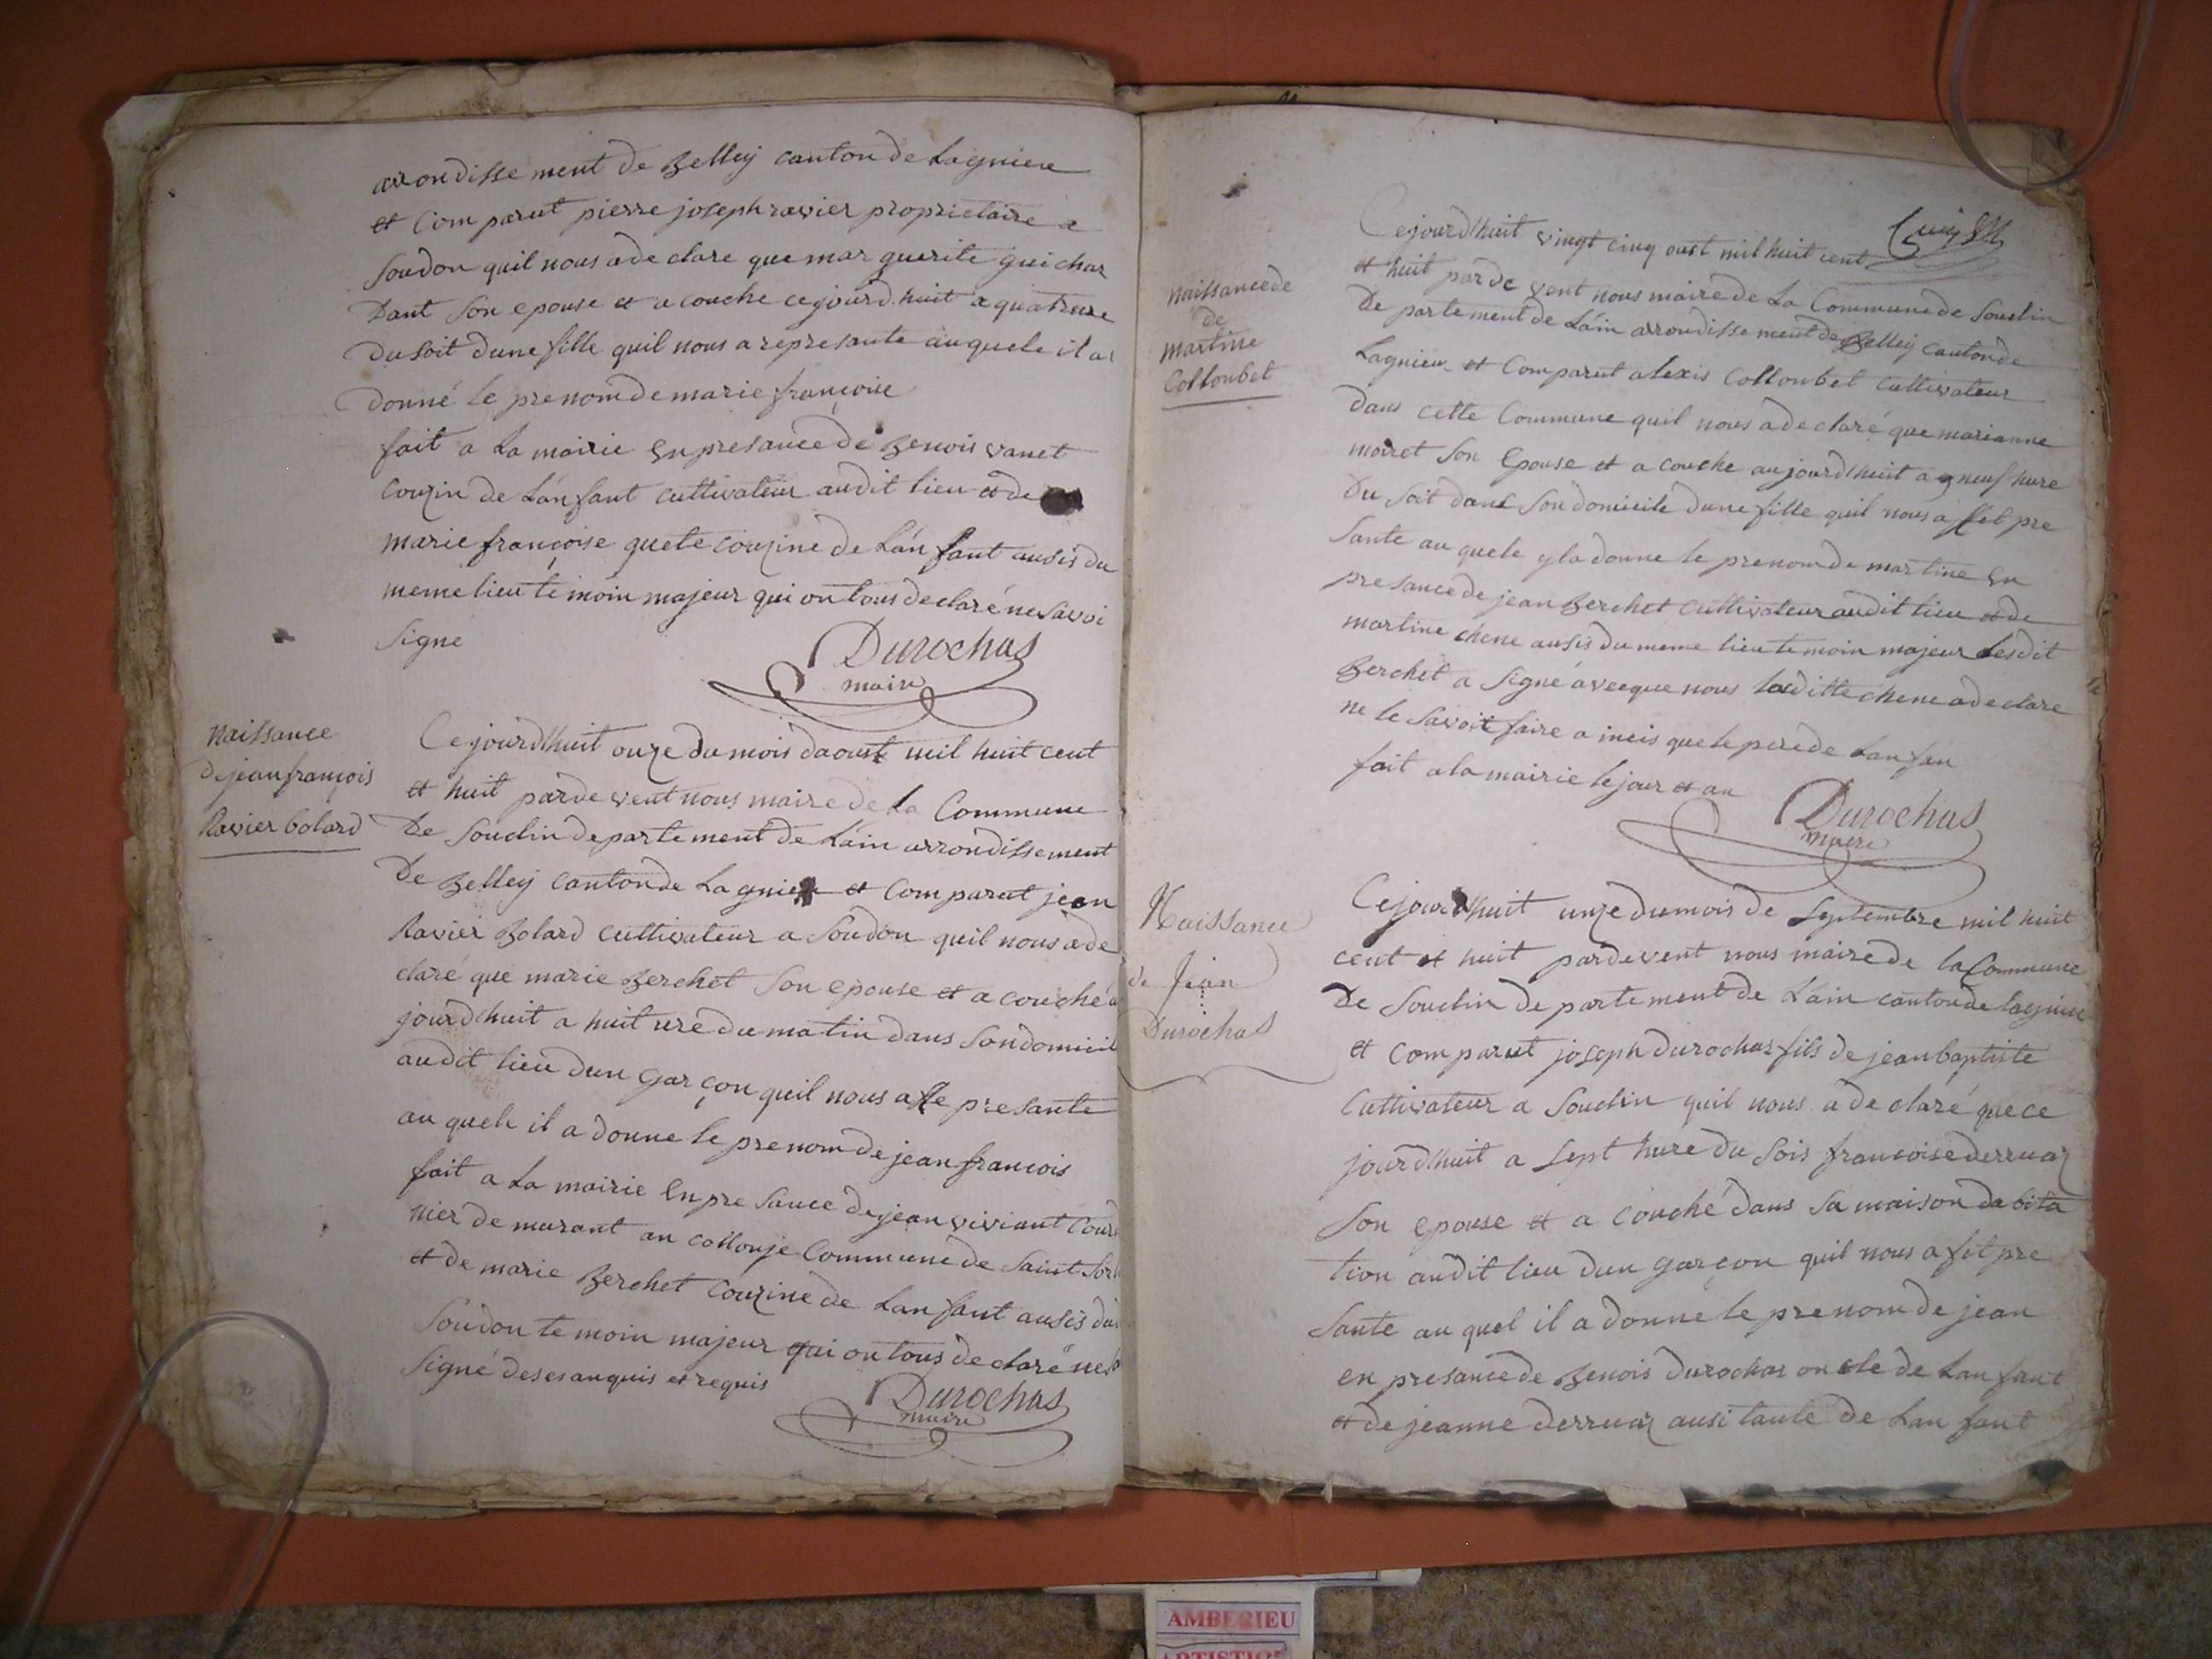 arondissement de Belley canton de Lagnieu
et comparut pierre joseph ravier proprietaire a
soudon quil nous a de clare que mar guerite guichar
Dant son epouse et a couche cejourd.huit a quatreure
Du soit dune fille quil nous a represante auquele il a
donné le prenom de marie françoise
fait a La mairie en presance de Benois vanet
couzin de Lán fant cultivateur audit lieu et de
marie françoise quete couzine de Lán fant ausis du
meme lieu te moin majeur qui on tous declaré ne savoi
signé
Durochas
maire
naissance
de jean françois
Ravier bolard
Ce jourdhuit onze du mois daoust mil huit cent
et huit par de vent nous maire de La Commune
De Souclin departement de Láin arrondissement
De Belley canton de Lagnieu et comparut jean
Ravier Bolard cultivateur a Soudon quil nous a de
claré que marie Berchet son epouse et a couché a
jourdhuit a huit ure du matin dans son domicil
audit lieu dun garçon quil nous a fte presante
au quele il a donne le prenom de jean francois
fait a La mairie en pre sance de jean viviant Cour
nier de murant au collonje Commune de Saint Sor
et de marie Berchet couzine de Lan fant ausis du
Soudon te moin majeur qui on tous de claré ne
signé de ses anquis et requis
Durochas
maire
naissance de
de
martine
Collonbet
Cejourdhuit vingt cinq oust mil huit cent
et huit par de vent nous maire de La Commune de Souclin
De partement de Láin arrondisse ment de Belley canton de
Lagnieu et comparut alexis Collonbet cultivateur
dans cette Commune quil nous a de claré que marianne
moiret son epouse et a couche aujourdhuit a 9 neuf hure
Du soit dans son domicile dune fille quil nous a fet pre
sante au quele yla donne le prenom de martine en
presance de jean Berchet cultivateur audit lieu et de
martine chene ausis du meme lieu te moin majeur Lesdit
Berchet a signé avecque nous laditte chene a de clare
ne le savoit faire a incis que le pere de Lan fan
fait a la mairie le jour et an
Durochas
maire
Naissance
de Jean
Durochas
Cejourdhuit unze du mois de Septembre mil huit
cent et huit pardevent nous maire de la Commune
De Souclin de partement de Láin canton de lagnieu
et comparut joseph durochas fils de jean baptiste
Cultivateur a Souclin quil nous a de claré que ce
jourdhuit a sept hure du sois francoise derruaz
son epouse et a couché dans sa maison dabita
tion audit lieu dun garçon quil nous a fet pre
sante au quel il a donné le prenom de jean
en presance de Benois durochas oncle de Lan fant
et de jeanne derruaz ausi tante de Lan fant
AMBERIEU